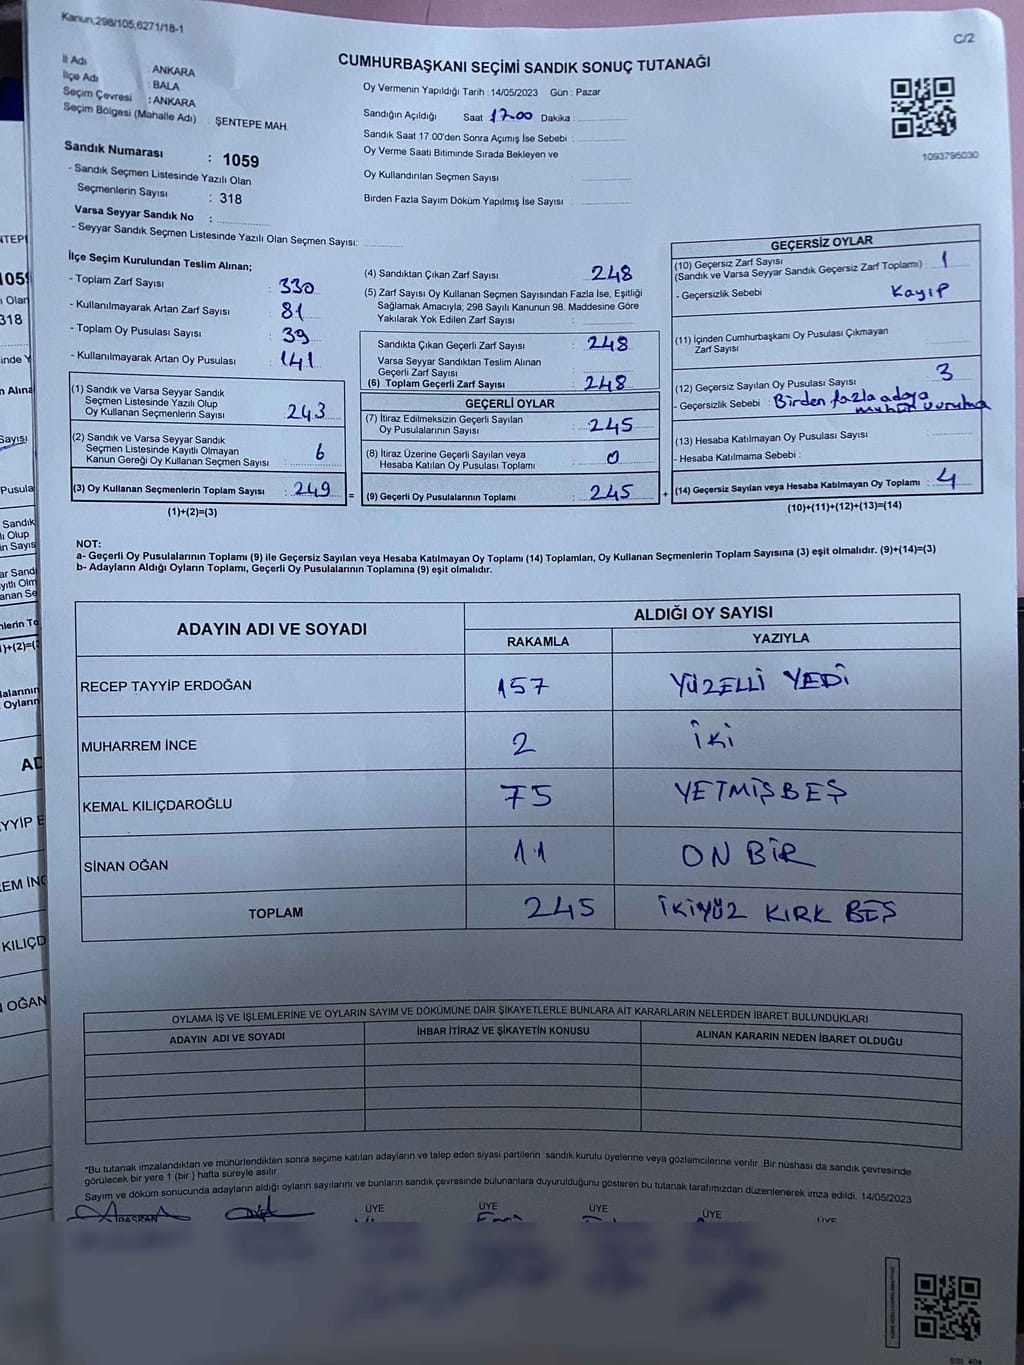 Kanun,298/105,6271/18-1
C/2
İl Adı : ANKARA
İlçe Adı : BALA
Seçim Çevresi : ANKARA
Seçim Bölgesi (Mahalle Adı) : ŞENTEPE MAH.
Sandık Numarası : 1059
- Sandık Seçmen Listesinde Yazılı Olan
Seçmenlerin Sayısı : 318
Varsa Seyyar Sandık No :
- Seyyar Sandık Seçmen Listesinde Yazılı Olan Seçmen Sayısı:
CUMHURBAŞKANI SEÇİMİ SANDIK SONUÇ TUTANAĞI
Oy Vermenin Yapıldığı Tarih : 14/05/2023 Gün : Pazar
Sandığın Açıldığı Saat 17.00 Dakika :
Sandık Saat 17:00'den Sonra Açımış İse Sebebi :
Oy Verme Saati Bitiminde Sırada Bekleyen ve
Oy Kullandırılan Seçmen Sayısı :
Birden Fazla Sayım Döküm Yapılmış İse Sayısı :
1093795030
İlçe Seçim Kurulundan Teslim Alınan;
- Toplam Zarf Sayısı : 330
- Kullanılmayarak Artan Zarf Sayısı : 81
- Toplam Oy Pusulası Sayısı : 39
- Kullanılmayarak Artan Oy Pusulası : 141
(1) Sandık ve Varsa Seyyar Sandık
Seçmen Listesinde Yazılı Olup
Oy Kullanan Seçmenlerin Sayısı : 243
(2) Sandık ve Varsa Seyyar Sandık
Seçmen Listesinde Kayıtlı Olmayan
Kanun Gereği Oy Kullanan Seçmen Sayısı : 6
(3) Oy Kullanan Seçmenlerin Toplam Sayısı : 249 =
(1)+(2)=(3)
(4) Sandıktan Çıkan Zarf Sayısı : 248
(5) Zarf Sayısı Oy Kullanan Seçmen Sayısından Fazla İse, Eşitliği
Sağlamak Amacıyla; 298 Sayılı Kanunun 98. Maddesine Göre
Yakılarak Yok Edilen Zarf Sayısı :
Sandıkta Çıkan Geçerli Zarf Sayısı : 248
Varsa Seyyar Sandıktan Teslim Alınan
Geçerli Zarf Sayısı :
(6) Toplam Geçerli Zarf Sayısı : 248
GEÇERLİ OYLAR
(7) İtiraz Edilmeksizin Geçerli Sayılan
Oy Pusulalarının Sayısı : 245
(8) İtiraz Üzerine Geçerli Sayılan veya
Hesaba Katılan Oy Pusulası Toplamı : 0
(9) Geçerli Oy Pusulalarının Toplamı : 245 +
GEÇERSİZ OYLAR
(10) Geçersiz Zarf Sayısı
(Sandık ve Varsa Seyyar Sandık Geçersiz Zarf Toplamı) : 1
- Geçersizlik Sebebi : Kayıp
(11) İçinden Cumhurbaşkanı Oy Pusulası Çıkmayan
Zarf Sayısı :
(12) Geçersiz Sayılan Oy Pusulası Sayısı : 3
- Geçersizlik Sebebi : Birden fazla adaya
mühür vurulma
(13) Hesaba Katılmayan Oy Pusulası Sayısı :
- Hesaba Katılmama Sebebi :
(14) Geçersiz Sayılan veya Hesaba Katılmayan Oy Toplamı : 4
(10)+(11)+(12)+(13)=(14)
NOT:
a- Geçerli Oy Pusulalarının Toplamı (9) ile Geçersiz Sayılan veya Hesaba Katılmayan Oy Toplamı (14) Toplamları, Oy Kullanan Seçmenlerin Toplam Sayısına (3) eşit olmalıdır. (9)+(14)=(3)
b- Adayların Aldığı Oyların Toplamı, Geçerli Oy Pusulalarının Toplamına (9) eşit olmalıdır.
ADAYIN ADI VE SOYADI
ALDIĞI OY SAYISI
RAKAMLA YAZIYLA
RECEP TAYYİP ERDOĞAN 157 YÜZELLİ YEDİ
MUHARREM İNCE 2 İKİ
KEMAL KILIÇDAROĞLU 75 YETMİŞBEŞ
SİNAN OĞAN 11 ON BİR
TOPLAM 245 İKİYÜZ KIRK BEŞ
OYLAMA İŞ VE İŞLEMLERİNE VE OYLARIN SAYIM VE DÖKÜMÜNE DAİR ŞİKAYETLERLE BUNLARA AİT KARARLARIN NELERDEN İBARET BULUNDUKLARI
ADAYIN ADI VE SOYADI İHBAR İTİRAZ VE ŞİKAYETİN KONUSU ALINAN KARARIN NEDEN İBARET OLDUĞU
*Bu tutanak imzalandıktan ve mühürlendikten sonra seçime katılan adayların ve talep eden siyasi partilerin sandık kurulu üyelerine veya gözlemcilerine verilir. Bir nüshası da sandık çevresinde
görülecek bir yere 1 (bir) hafta süreyle asılır.
Sayım ve döküm sonucunda adayların aldığı oyların sayılarını ve bunların sandık çevresinde bulunanlara duyurulduğunu gösteren bu tutanak tarafımızdan düzenlenerek imza edildi. 14/05/2023
BAŞKAN ÜYE ÜYE ÜYE ÜYE ÜYE